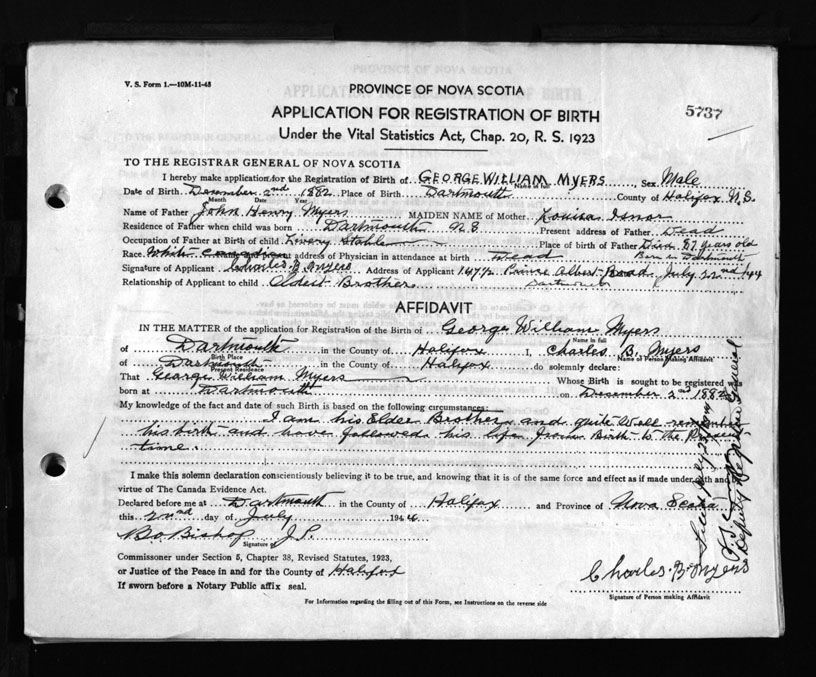 V. S. Form 1.—10M-11-43
PROVINCE OF NOVA SCOTIA
5737
APPLICATION FOR REGISTRATION OF BIRTH
Under the Vital Statistics Act, Chap. 20, R. S. 1923
TO THE REGISTRAR GENERAL OF NOVA SCOTIA
I hereby make application for the Registration of Birth of GEORGE WILLIAM MYERS Sex Male
Name in full
Date of Birth Desember 2nd 1882 Place of Birth Dartmouth County of Halifax N.S.
Month Date Year
Name of Father John Henry Myers MAIDEN NAME of Mother Louisa Isnor
Residence of Father when child was born Dartmouth N S Present address of Father Dead
Occupation of Father at Birth of child Livery Stable Place of birth of Father Died 87 years old
Race White address of Physician in attendance at birth Dead Born in Dartmouth
Signature of Applicant Charles B Myers Address of Applicant 147½ Prince Albert Road July 22nd 44
Relationship of Applicant to child Oldest Brother Dartmouth
AFFIDAVIT
IN THE MATTER of the application for Registration of the Birth of George William Myers
Name in full
of Dartmouth in the County of Halifax I, Charles B. Myers
Birth Place Name of Person making Affidavit
of Dartmouth in the County of Halifax do solemnly declare:
Present Residence
That George William Myers Whose Birth is sought to be registered was
born at Dartmouth on Desember 2nd 1882
My knowledge of the fact and date of such Birth is based on the following circumstances:
I am his Elder Brother and quite Well remember
his birth and have followed his life from Birth to the Present
time.
I make this solemn declaration conscientiously believing it to be true, and knowing that it is of the same force and effect as if made under oath and
virtue of The Canada Evidence Act.
Declared before me at Dartmouth in the County of Halifax and Province of Nova Scotia
this 22nd day of July 1944
Bishop J.P.
Signature of
Commissioner under Section 5, Chapter 38, Revised Statutes, 1923,
or Justice of the Peace in and for the County of Halifax
If sworn before a Notary Public affix seal.
Charles B. Myers
Signature of Person making Affidavit
For Information regarding the filling out of this Form, see Instructions on the reverse side
Deputy Registrar General